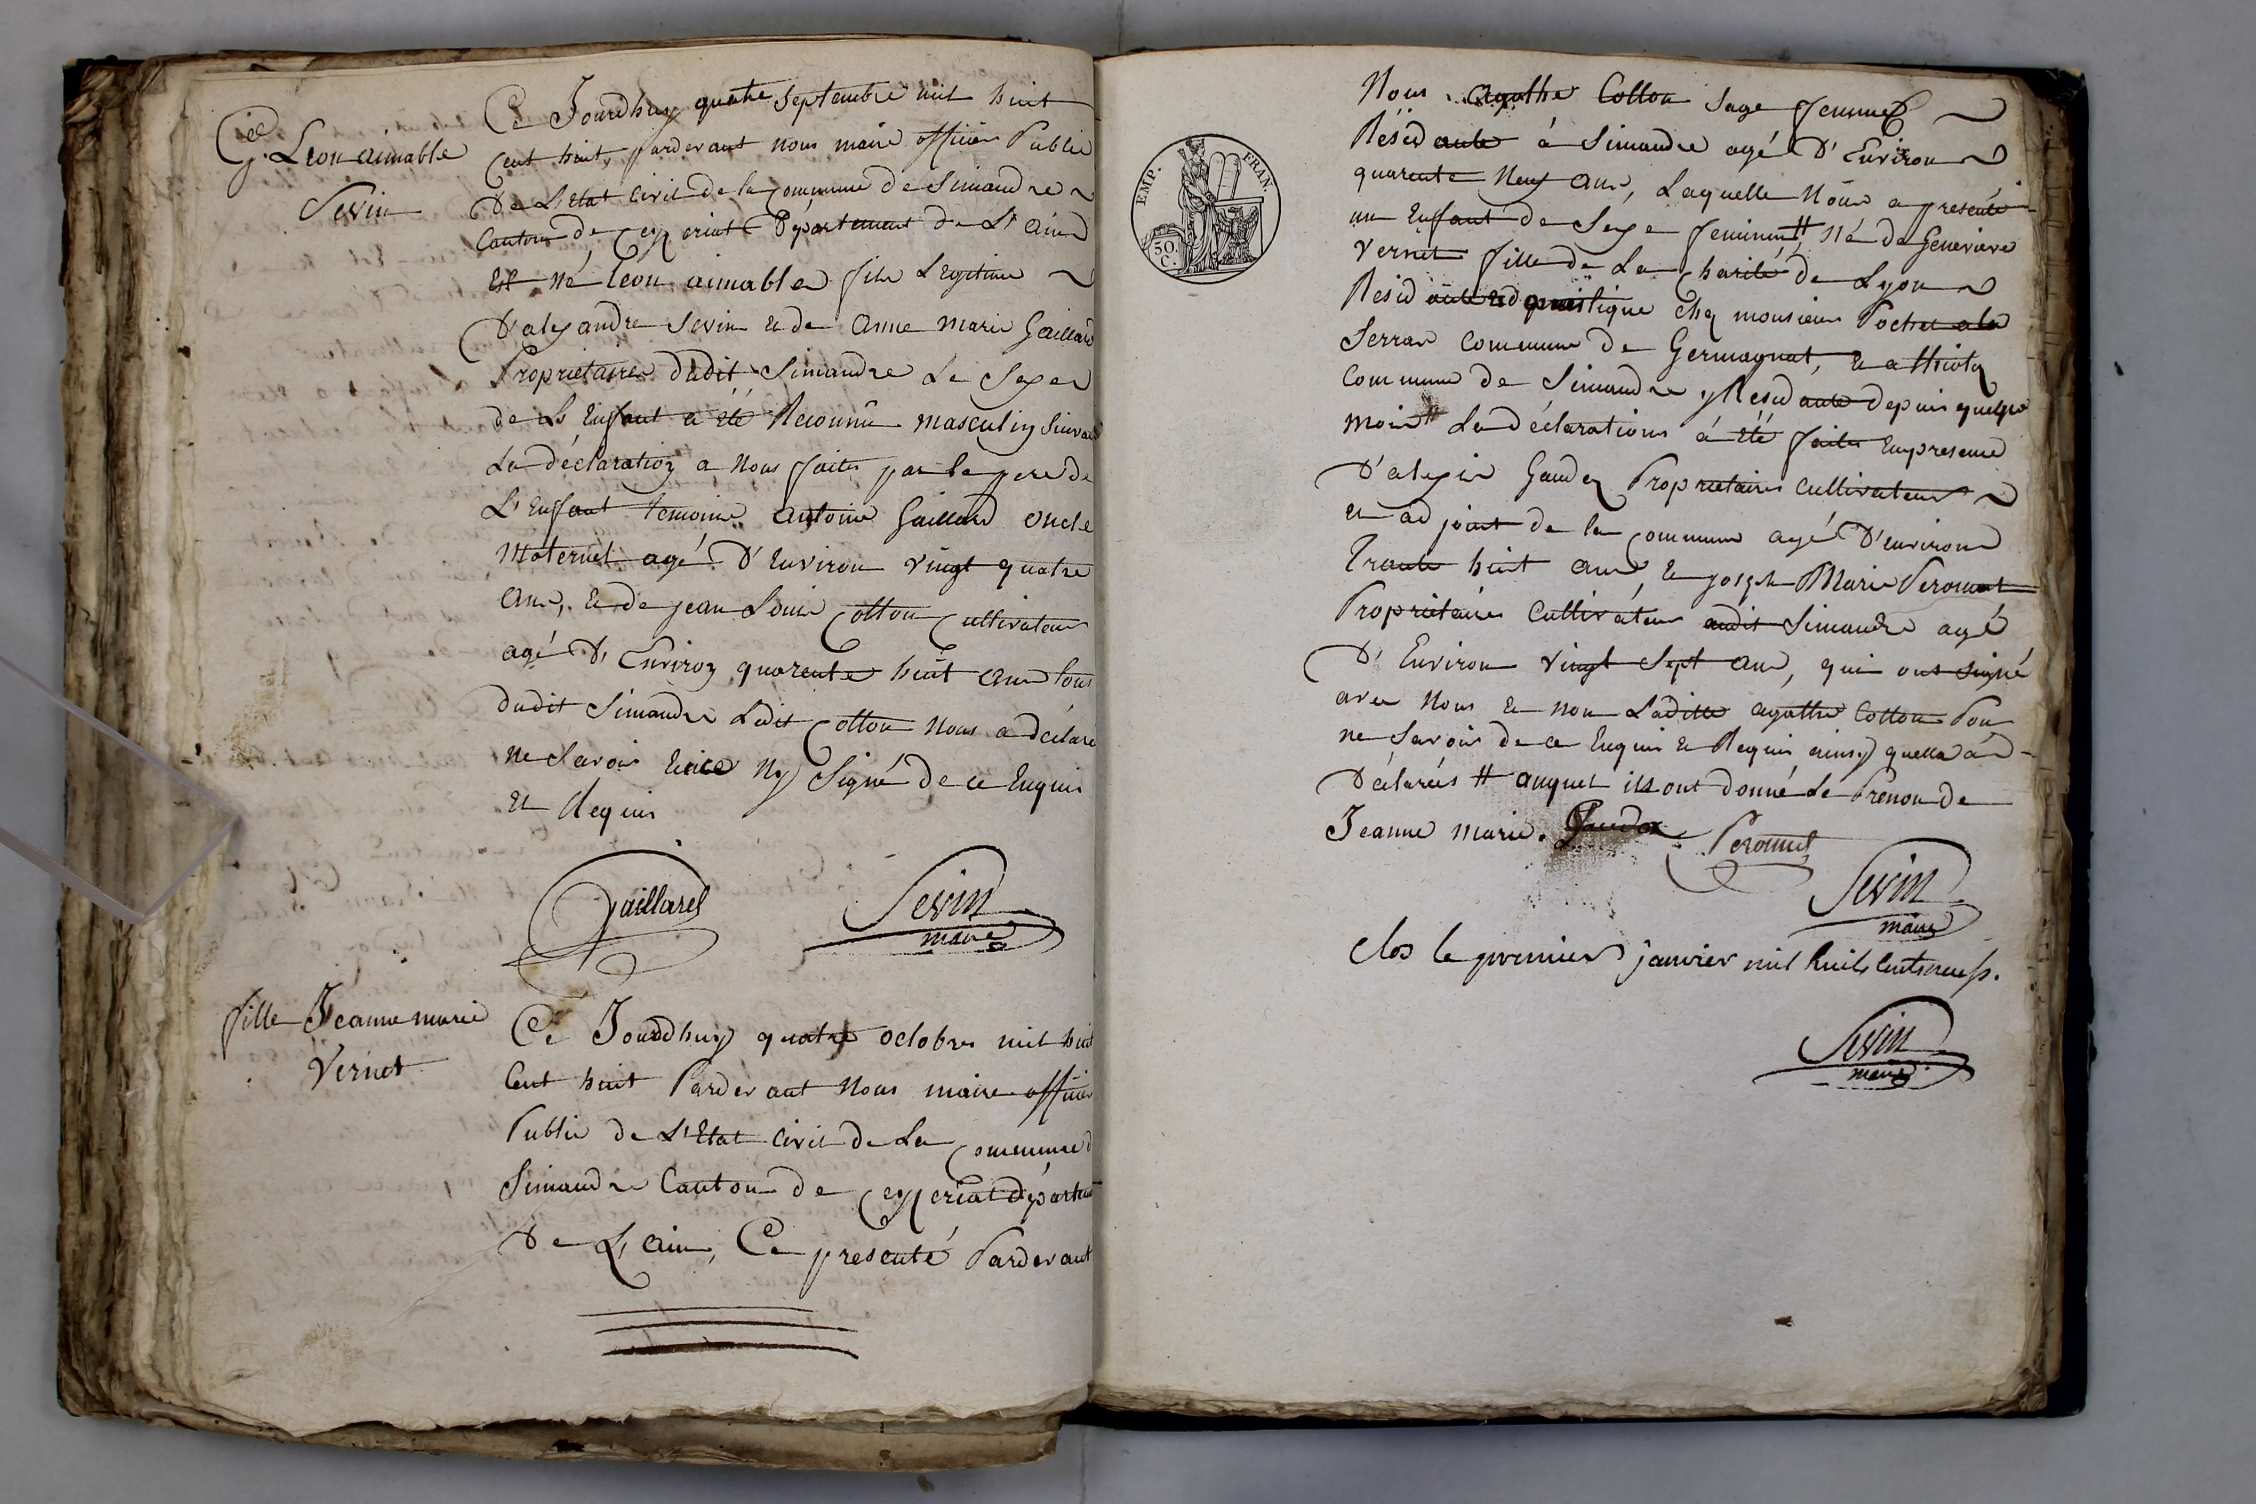 Leon aimable
Sevin
Ce Jourdhuy quatre Septembre mil huit
cent huit, pardevant nous maire officier Public
De L'Etat Civil de la Commune de Simandre
Canton de Ceyzeriat Département de L'ain
Est né Leon aimable fils Legitime
D'alexandre Sevin et de Anne Marie Gaillard
Propriétaires dudit Simandre Le Sexe
de L'Enfant a été Reconnu masculin Suivant
La déclaration a Nous faite par le pere de
L'Enfant temoins antoine Gaillard oncle
Maternel agé D'Environ vingt quatre
ans, et de jean Louis Cotton Cultivateur
agé D'Environ quarente huit ans tous
dudit Simandre Ledit Cotton Nous a déclaré
ne Savoir Ecrire Ny Signé de ce Enquis
et Requis
Gaillard Sevin
maire
fille Jeanne marie
Vernet
Ce Jourdhuy quatre octobre mil huit
Cent huit Pardevant Nous maire officier
Public de L'Etat Civil de La Commune d
Simandre Canton de Ceyzeriat départem
De L'ain, Ce presenté Pardevant
EMP. FRAN.
50 C.
Nous agathe Cotton Sage femme
Résidante à Simandre agé D'Environ
quarente Neuf ans, Laquelle Nous a presenté
un Enfant de Sexe feminin # Né de Genevieve
Vernet fille de La Charité de Lyon
Résidante chez monsieur Pochet a la
Serraz Commune de Germagnat, et a
Commune de Simandre y Residante depuis quelque
mois # La déclarations á été faites Enpresence
D'alexis Gaudez Propriétaires Cultivateur
et adjoint de la Commune agé D'environ
Trante huit ans, et joseph Marie Peromet
Propriétaires Cultivateur audit Simandre agé
D'Environ vingt Sept ans, qui ont signé
avec Nous et non Ladille agathe Cotton Pour
ne Savoir de ce Enquis et Requis ainsy quelle a
Déclarés # auquel ils ont donné Le Prenon de
Jeanne Marie. Gaudez Peromet
Sevin
maire
Clos le premier janvier mil huit cents neuf.
Sevin
maire